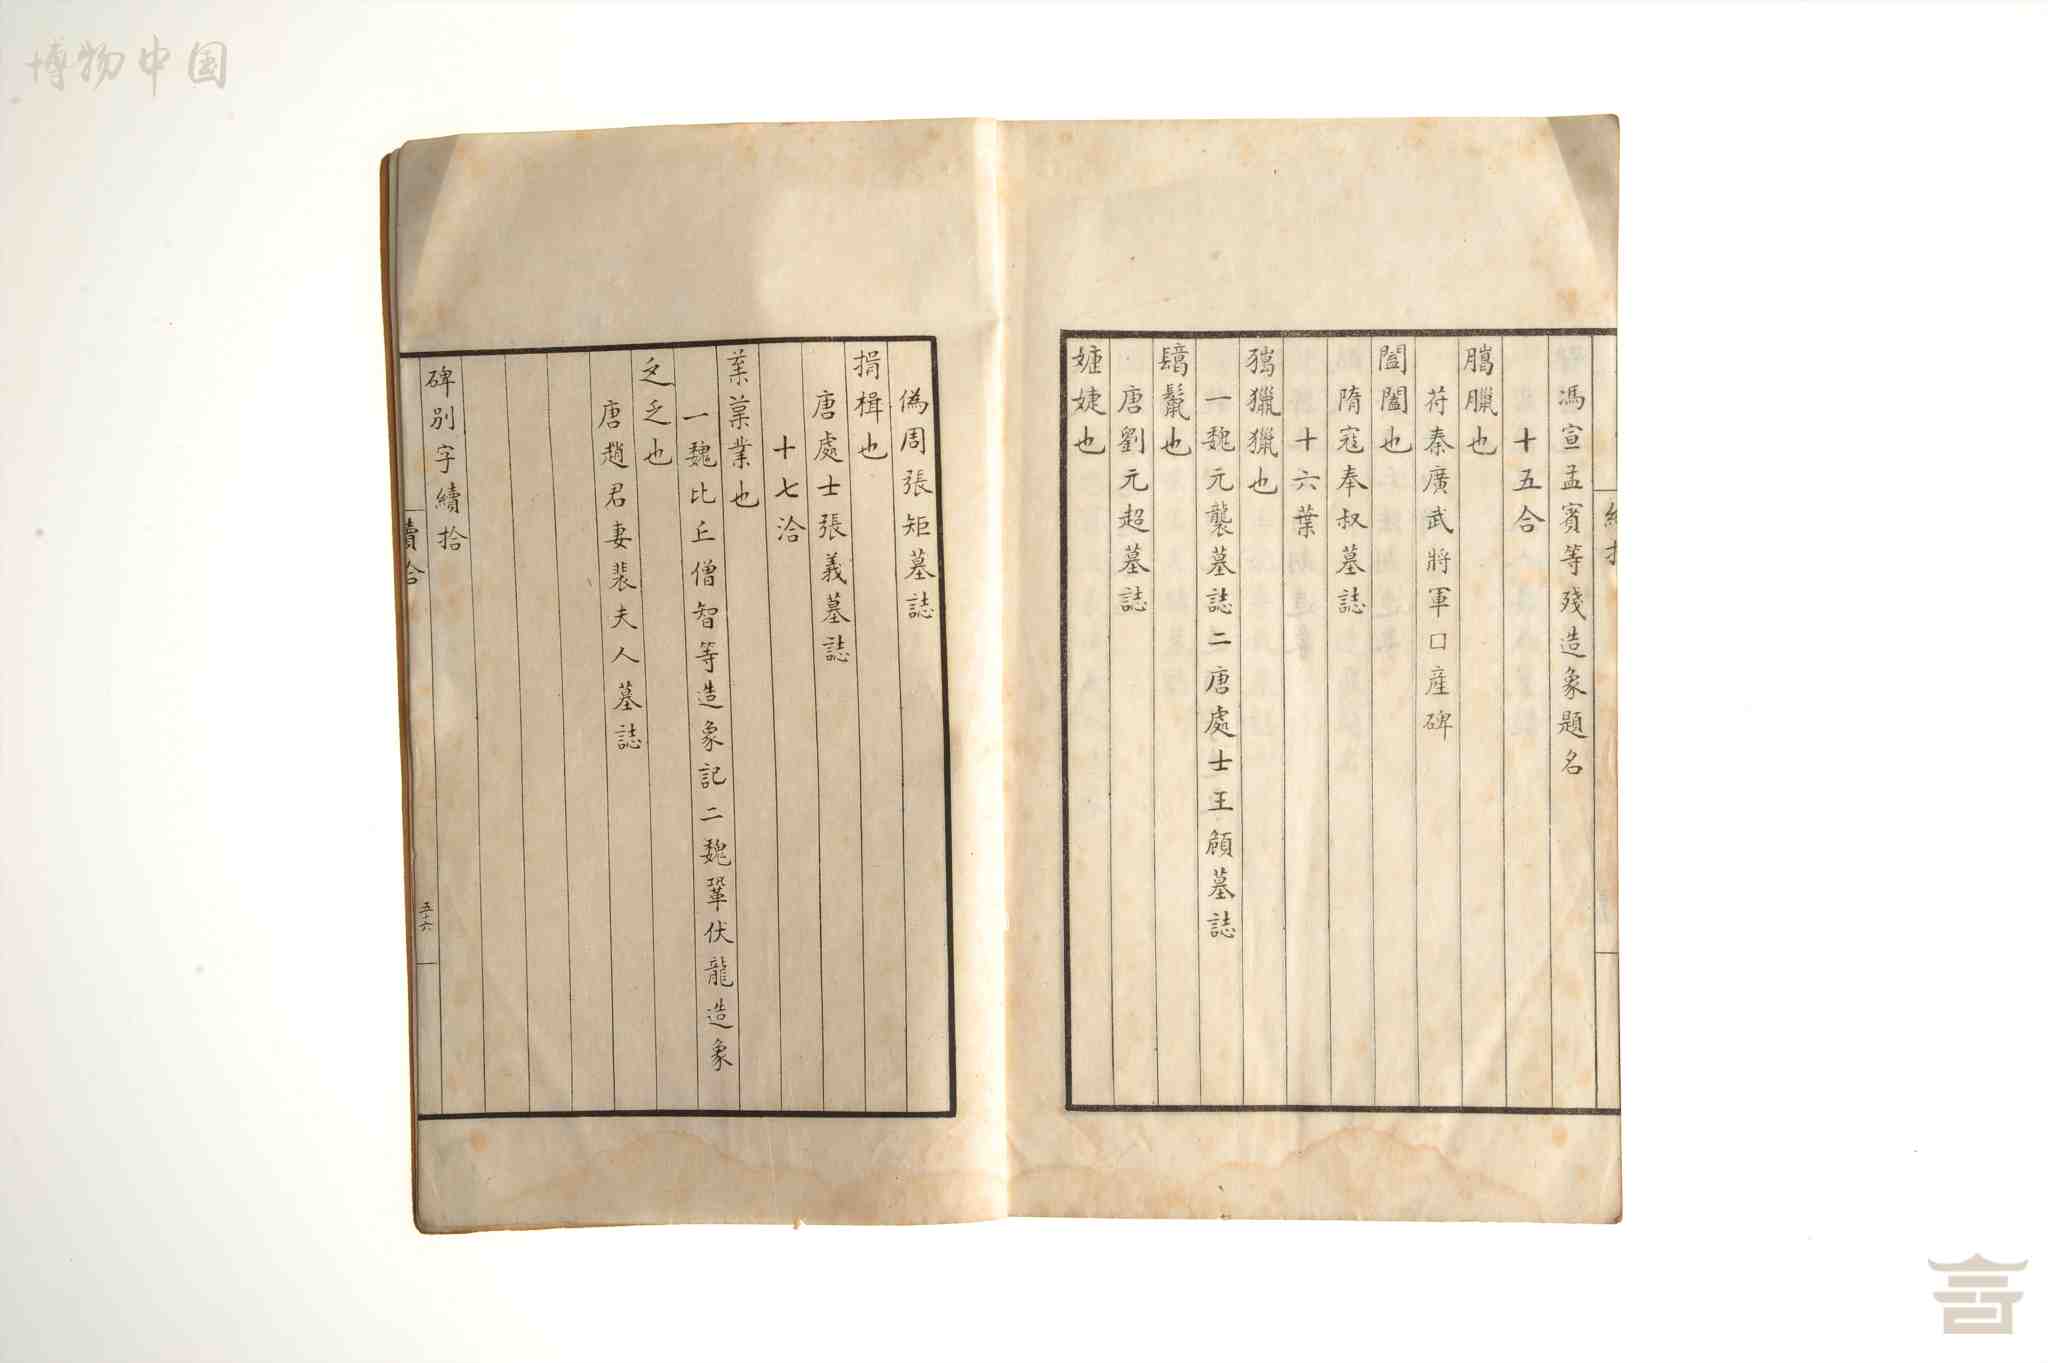 博物中国
馮宣孟賓等殘造象題名
十五合
臘也
苻秦廣武將軍口産碑
闔也
隋寇奉叔墓誌
十六葉
獵獵也
一魏元襲墓誌二唐處士王顧墓誌
鬣也
唐劉元超墓誌
婕也
偽周張矩墓誌
捐楫也
唐處士張義墓誌
十七洽
業也
一魏比丘僧智等造象記二魏鞏伏龍造象
乏也
唐趙君妻裴夫人墓誌
碑別字續拾
五十六